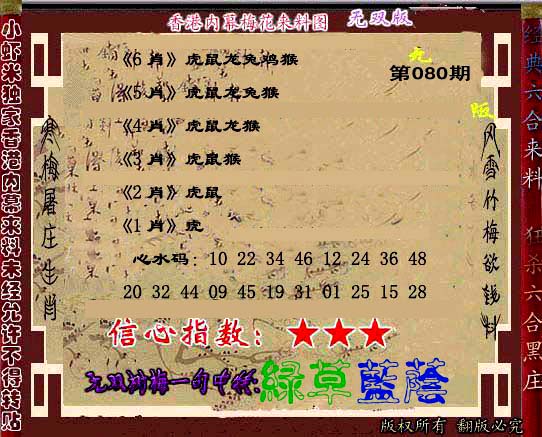 香港内幕梅花来料图 无双版
无
第080期
版
《6肖》虎鼠龙兔鸡猴
《5肖》虎鼠龙兔猴
《4肖》虎鼠龙猴
《3肖》虎鼠猴
《2肖》虎鼠
《1肖》虎
心水码：10 22 34 46 12 24 36 48
20 32 44 09 45 19 31 01 25 15 28
信心指数：★★★
无双刘梅一句中特:綠草藍蔭
版权所有 翻版必究
小虾米独家香港内幕来料未经允许不得转贴
寒梅屠庄生肖
风雪竹梅欲钱料
经典六合来料 狂杀六合黑庄